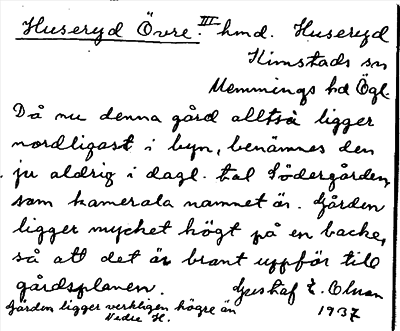 Huseryd Övre. III hmd. Huseryd
Kimstads sn
Memmings hd Ögl.
Då nu denna gård alltså ligger
nordligast i byn, benämnes den
ju aldrig i dagl. tal Södergården,
som kamerala namnet är. Gården
ligger mycket högt på en backe,
så att det är brant uppför till
gårdsplanen. Gustaf E. Olsson
Gården ligger verkligen högre än 1937
Nedre H.